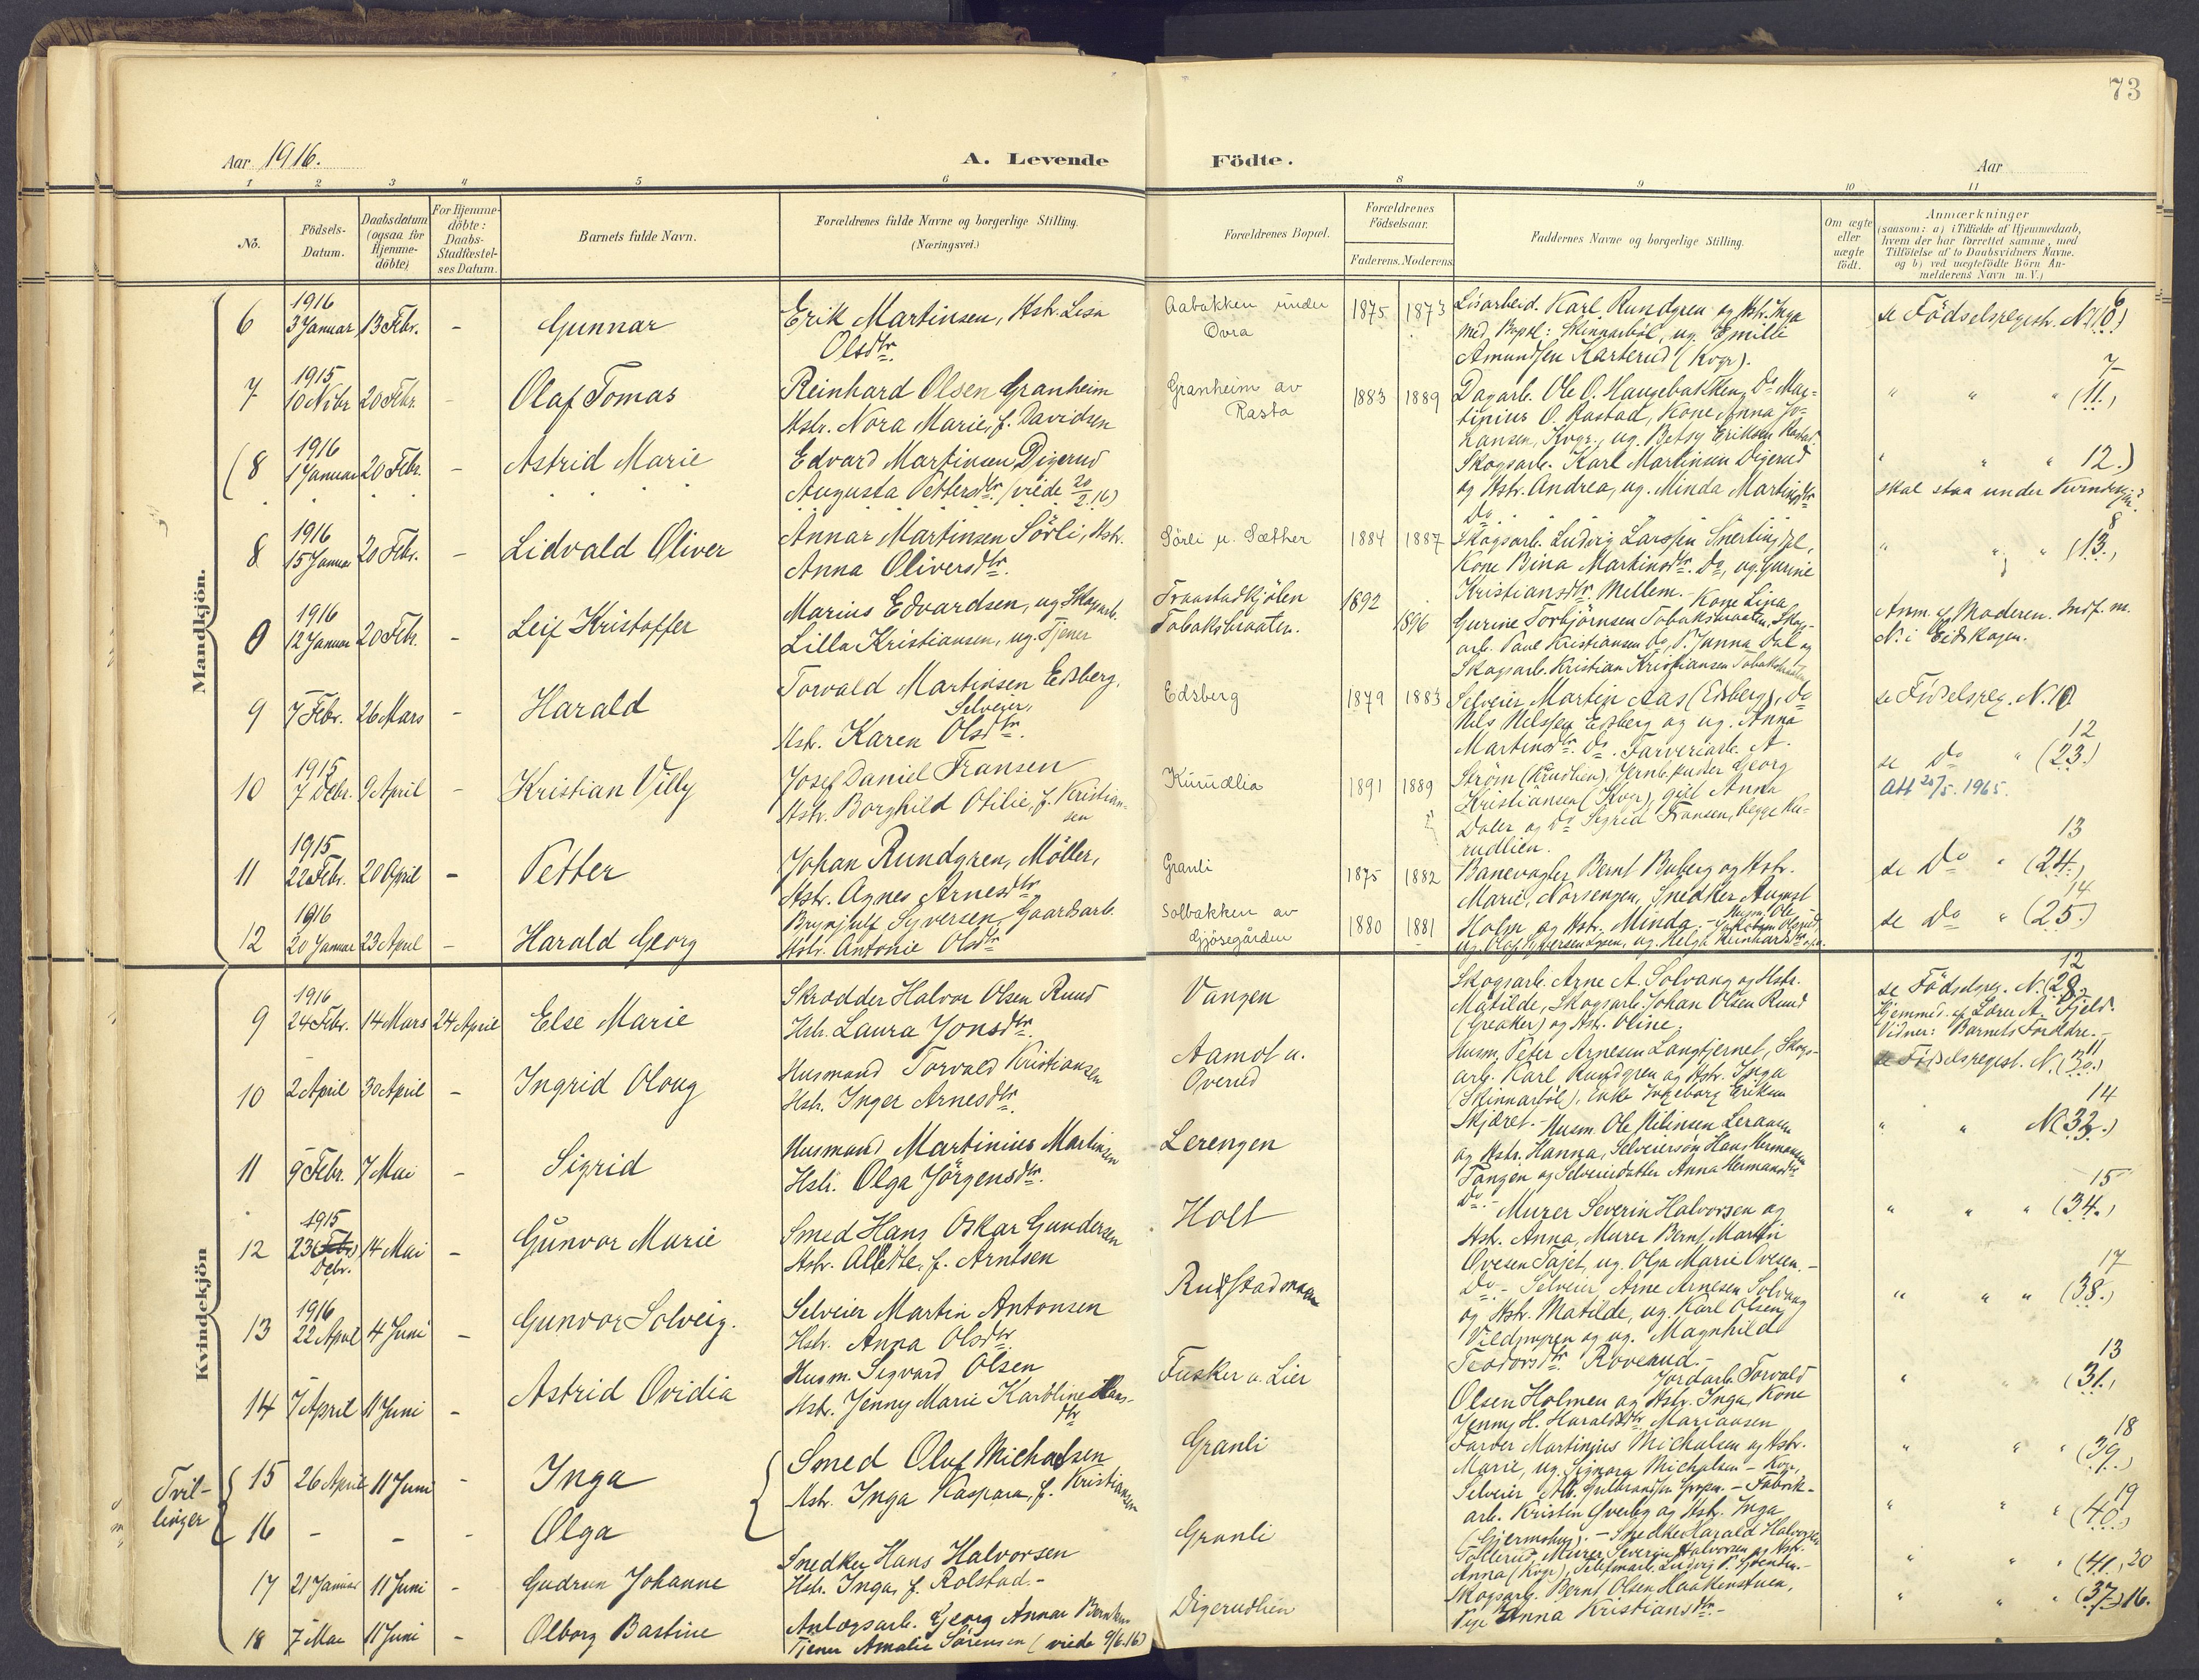 73
Aar 1916.
A. Levende Födte.
Aar
1 2 3 4 5 6 8 9 10 11
Nö.
Födsels-Datum.
Daabsdatum (ogsaa for Hjemme-döbte)
For Hjemme-döbte: Daabs-Stadfæstel-ses Datum.
Barnets fulde Navn.
Forældrenes fulde Navne og borgerlige Stilling. (Næringsvei.)
Forældrenes Bopæl.
Forældrenes Födselsaar.
Faderens. Moderens
Faddernes Navne og borgerlige Stilling.
Om ægte eller uægte födt.
Anmærkninger
(saasom: a) i Tilfælde af Hjemmedaab,
hvem der har forrettet samme, med
Tilföielse af to Daabsvidners Navne.
og b) ved uægtefödte Börn An-
melderens Navn m. V.)
Mandkjön.
6 1916 3 Januar 13 Febr. - Gunnar
Erik Martinsen, Hstr. Lisa
Olsdtr.
Aabakken under
Ovra
1875 1873
Karl Rundgren og Hstr. Inga
Skinnarböl, ug. Emilie
Amundsen Karterud (Kvgr).
se Födselsregistr. No (10) 6
7 1915 10 Novbr 20 Febr. - Olaf Tomas
Reinhard Olsen Granheim
Hstr. Nora Marie, f. Davidsen
Granheim av
Rasta
1883 1889
Dagarb. Ole O. Haugebakken, Do Mar-
tinius O. Rastad, Kone Anna Jo-
hansen, Kvgr., ug. Betsy Eriksen
" " " (11.) 7
(8 1916 1 Januar 20 Febr. - Astrid Marie
Edvard Martinsen Digerud
Augusta Pettersdtr. (viede 20/2.16)
Skogsarb. Karl Martinsen Digerud
og Hstr. Andrea, ug. Minda Martinsdtr
Do.
" " " 12.)
skal staa under Kvindekjön.
8 1916 15 Januar 20 Febr. - Lidvald Oliver
Annar Martinsen Sörli, Hstr.
Anna Oliversdtr.
Sörli u. Sæther
1884 1887
Skogsarb. Ludvig Larssen
Kone Bina Martinsdtr. Do, ug. Gurine
Kristiansdtr. Mellem.
" " " (13.) 8
0 1916 12 Januar 20 Febr. - Leif Kristoffer
Marius Edvardsen, ug. Skogsarb.
Lilla Kristiansen, ug. Tjener
Fraastadkjölen
Tobaksbraaten.
1892 1896
Kone Lina
Gurine Torbjörnsen Tobaksbraaten, Skog-
arb. Paul Kristiansen Do, P. Janna Dal og
Skogsarb. Kristian Kristiansen Tobaksbraaten
Anm. af Moderen. Indf. m.
N. i Eidskogen.
9 7 Febr. 26 Mars - Harald
Torvald Martinsen Edsberg,
Selveier,
Hstr. Karen Olsdtr.
Edsberg
1879 1883
Selveier Martin Aas (Edsberg), Do
Nils Nilssen Edsberg og ug. Anna
Martinsdtr. Do. Farveriarb. A.
se Födselsreg. N. 10
10 1915 7 Debr. 9 April - Kristian Villy
Josef Daniel Fransen
Hstr. Borghild Otilie, f. Kristian-
sen
Kurudlia
1891 1889
Ström (Krudlien), Jernb. puder Georg
Kristiansen (Kvgr), gift Anna
Daler og Do Sigrid Fransen, begge Ku-
rudlien.
se Do " (23.) 12
Att 20/5. 1965.
11 1915 22 Febr. 20 April - Petter
Johan Rundgren, Möller,
Hstr. Agnes Arnesdtr
Granli
1875 1882
Banevogter Bernt Buberg og Hstr.
Marie, Norsengen, Snedker August
se Do " (24.) 13
12 1916 20 Januar 23 April - Harald Georg
Brynjulf Syversen, Gaardsarb.
Hstr. Antonie Olsdtr
Solbakken av
Gjösegården
1880 1881
Holm og Hstr. Minda. - Husm. Ole
se Do " (25.) 14
Kvindekjön
9 1916 24 Febr. 14 Mars 24 April Else Marie
Skrædder Halvor Olsen Ruud
Hstr. Laura Jonsdtr.
Vangen
Skogsarb. Arne A. Solvang og Hstr.
Matilde, Skogsarb. Johan Olsen Ruud
(Greaker) og Hstr. Oline.
se Födselsreg. N. (28.) 12
Hjemmed. af Lærer A. Fjeld.
Vidner: Barnets Forældre. -
10 2 April 30 April - Ingrid Oloug
Husmand Torvald Kristiansen
Hstr. Inger Arnesdtr.
Aamot u.
Overud
Husm. Peter Arnesen Langtjernet, Skogs-
arb. Karl Rundgren og Hstr. Inga
(Skinnarböl), Enke Ingeborg Eriksen
Skjæret.
se Födselsregist. N. (30.) 11
11 9 Febr. 7 Mai - Sigrid
Husmand Martinius Martinsen
Hstr. Olga Jörgensdtr.
Lerengen
Husm. Ole Nilinsen Leraasen
og Hstr. Hanna, Selveiersön Hans Hermansen
Tangen og Selveierdatter Anna Hermansdtr
Do. -
" " N. 32.) 14
12 1915 23 (Febr) Debr. 14 Mai - Gunvor Marie
Smed Hans Oskar Gundersen
Hstr. Alette, f. Arntsen
Holt
Murer Severin Halvorsen og
Hstr. Anna, Murer Bernt Martin
Ovesen Tajet, ug. Olga Marie Ovesen. -
Do. -
" " " (34.) 15
13 1916 22 April 4 Juni - Gunvor Solveig.
Selveier Martin Antonsen
Hstr. Anna Olsdtr.
Rudstadmoen
Selveier Arne Arnesen Solvang
og Hstr. Matilde, ug. Karl Olsen
og ug. Magnhild
Teodorsdtr Roverud. -
" " " (38.) 17
14 7 April 11 Juni - Astrid Ovidia
Husm. Sigvard Olsen
Hstr. Jenny Marie Karoline Hans-
dtr
Fusker u. Lier
Jordarb. Torvald
Olsen Holmen og Hstr. Inga, Kone
Jenny H. Haraldsdtr Mariausen
" " " (31.) 13
Tvil-
linger
15 26 April 11 Juni - Inga
Smed Oluf Michalsen
Hstr. Inga Kaspara, f. Kristiansen
Granli
Farver Martinius Michalsen og Hstr.
Marie, ug. Signora Michalsen - Kvgr,
" " " (39.) 18
16 - - - Olga
Selveier Alb. - Fabrik-
arb. Kristen Overby og Hstr. Inga
" " " (40.) 19
17 21 Januar 11 Juni - Gudrun Johanne
Snedker Hans Halvorsen
Hstr. Inga, f. Rolstad. -
Granli
- Snedker Harald Halvorsen
Tollerud, Murer Severin Halvorsen og Hstr.
Anna (Kvgr),
" " " (41.) 20
18 7 Mai 11 Juni - Olborg Bastine
Anlægsarb. Georg Annar Berntsen
Tjener Amalie Sörensen (viede 9/6.16)
Digerudlien
Skogsarb. Bernt Olsen Haakenstuen,
Pige Anna Kristiansdtr. -
" " " (37.) 16.